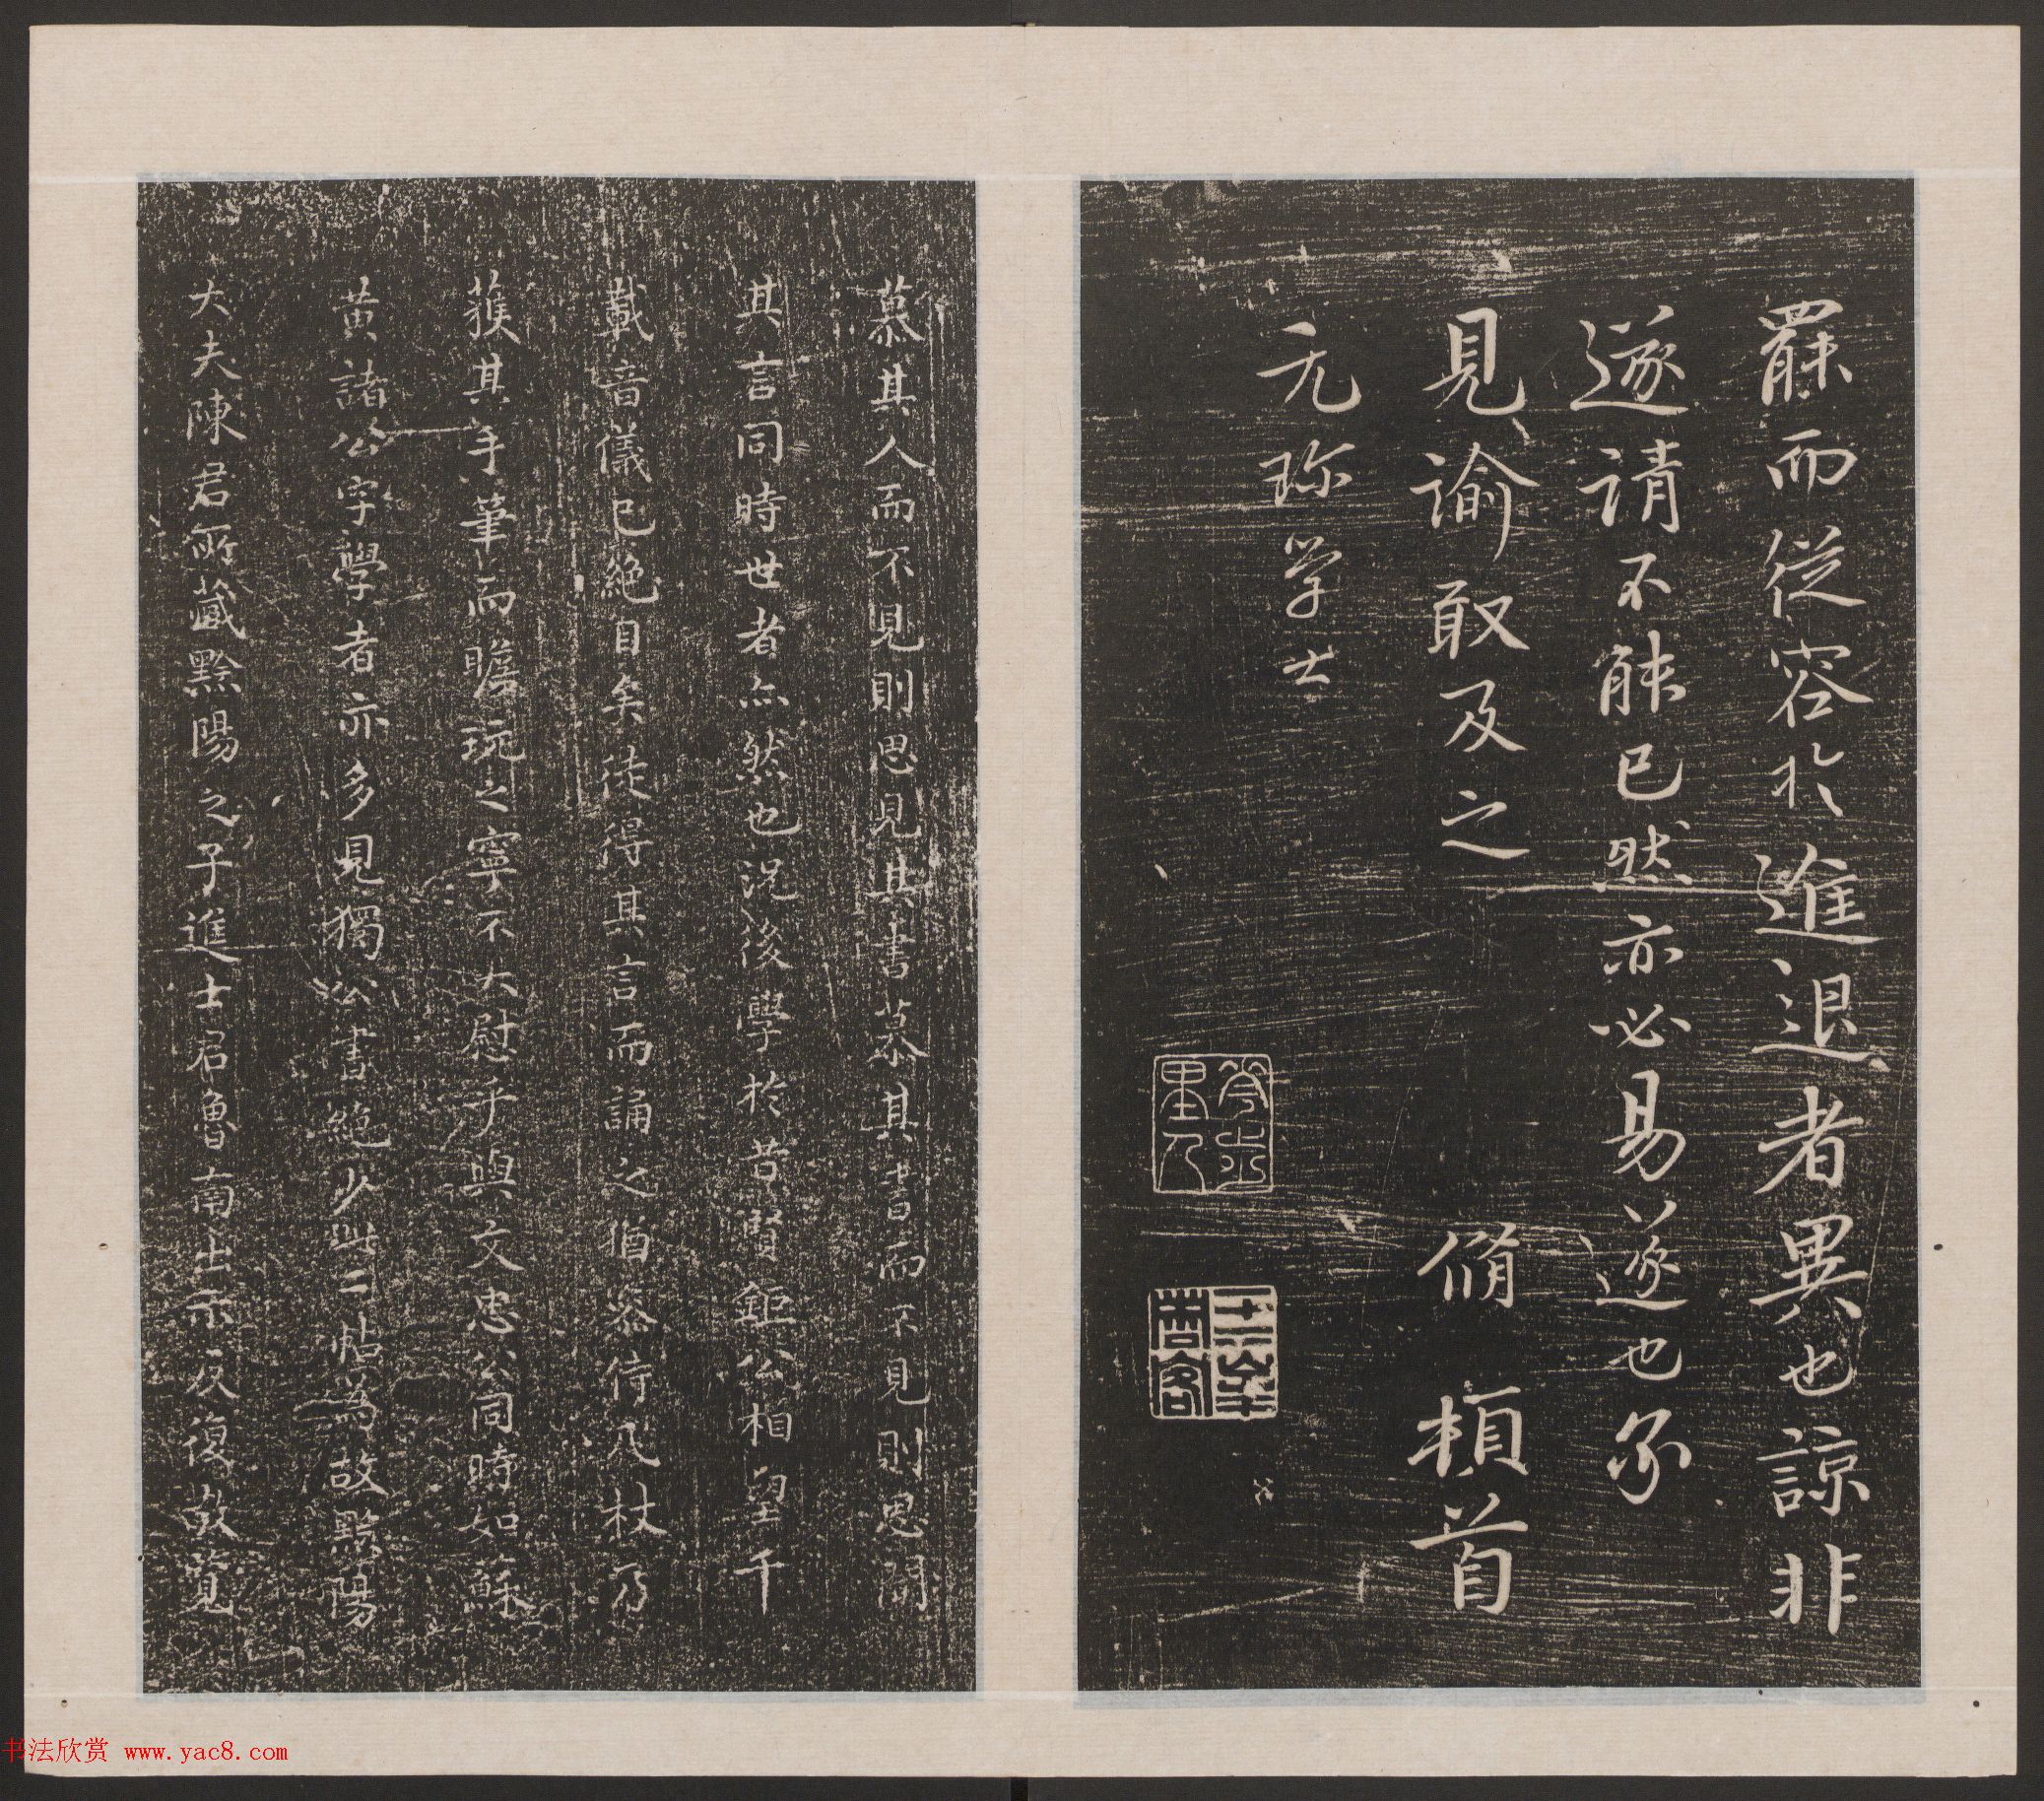 罷而從容於進退者異也諒非
遂請不能已然亦必易遂也分
見諭敢及之 脩頓首
元珍学士
慕其人而不見則思見其書慕其書而不見則思聞
其言同時世者亦然也況後學於昔賢鉅公相望千
載音儀已絕目矣徒得其言而誦之猶恭侍几杖乃
獲其手筆而瞻玩之寧不大慰乎與文忠公同時如蘇
黄諸公字學者亦多見獨公書絕少此二帖為故黟陽
大夫陳君所藏黟陽之子進士君魯南出示反復敬覧
书法欣赏 www.yac8.com